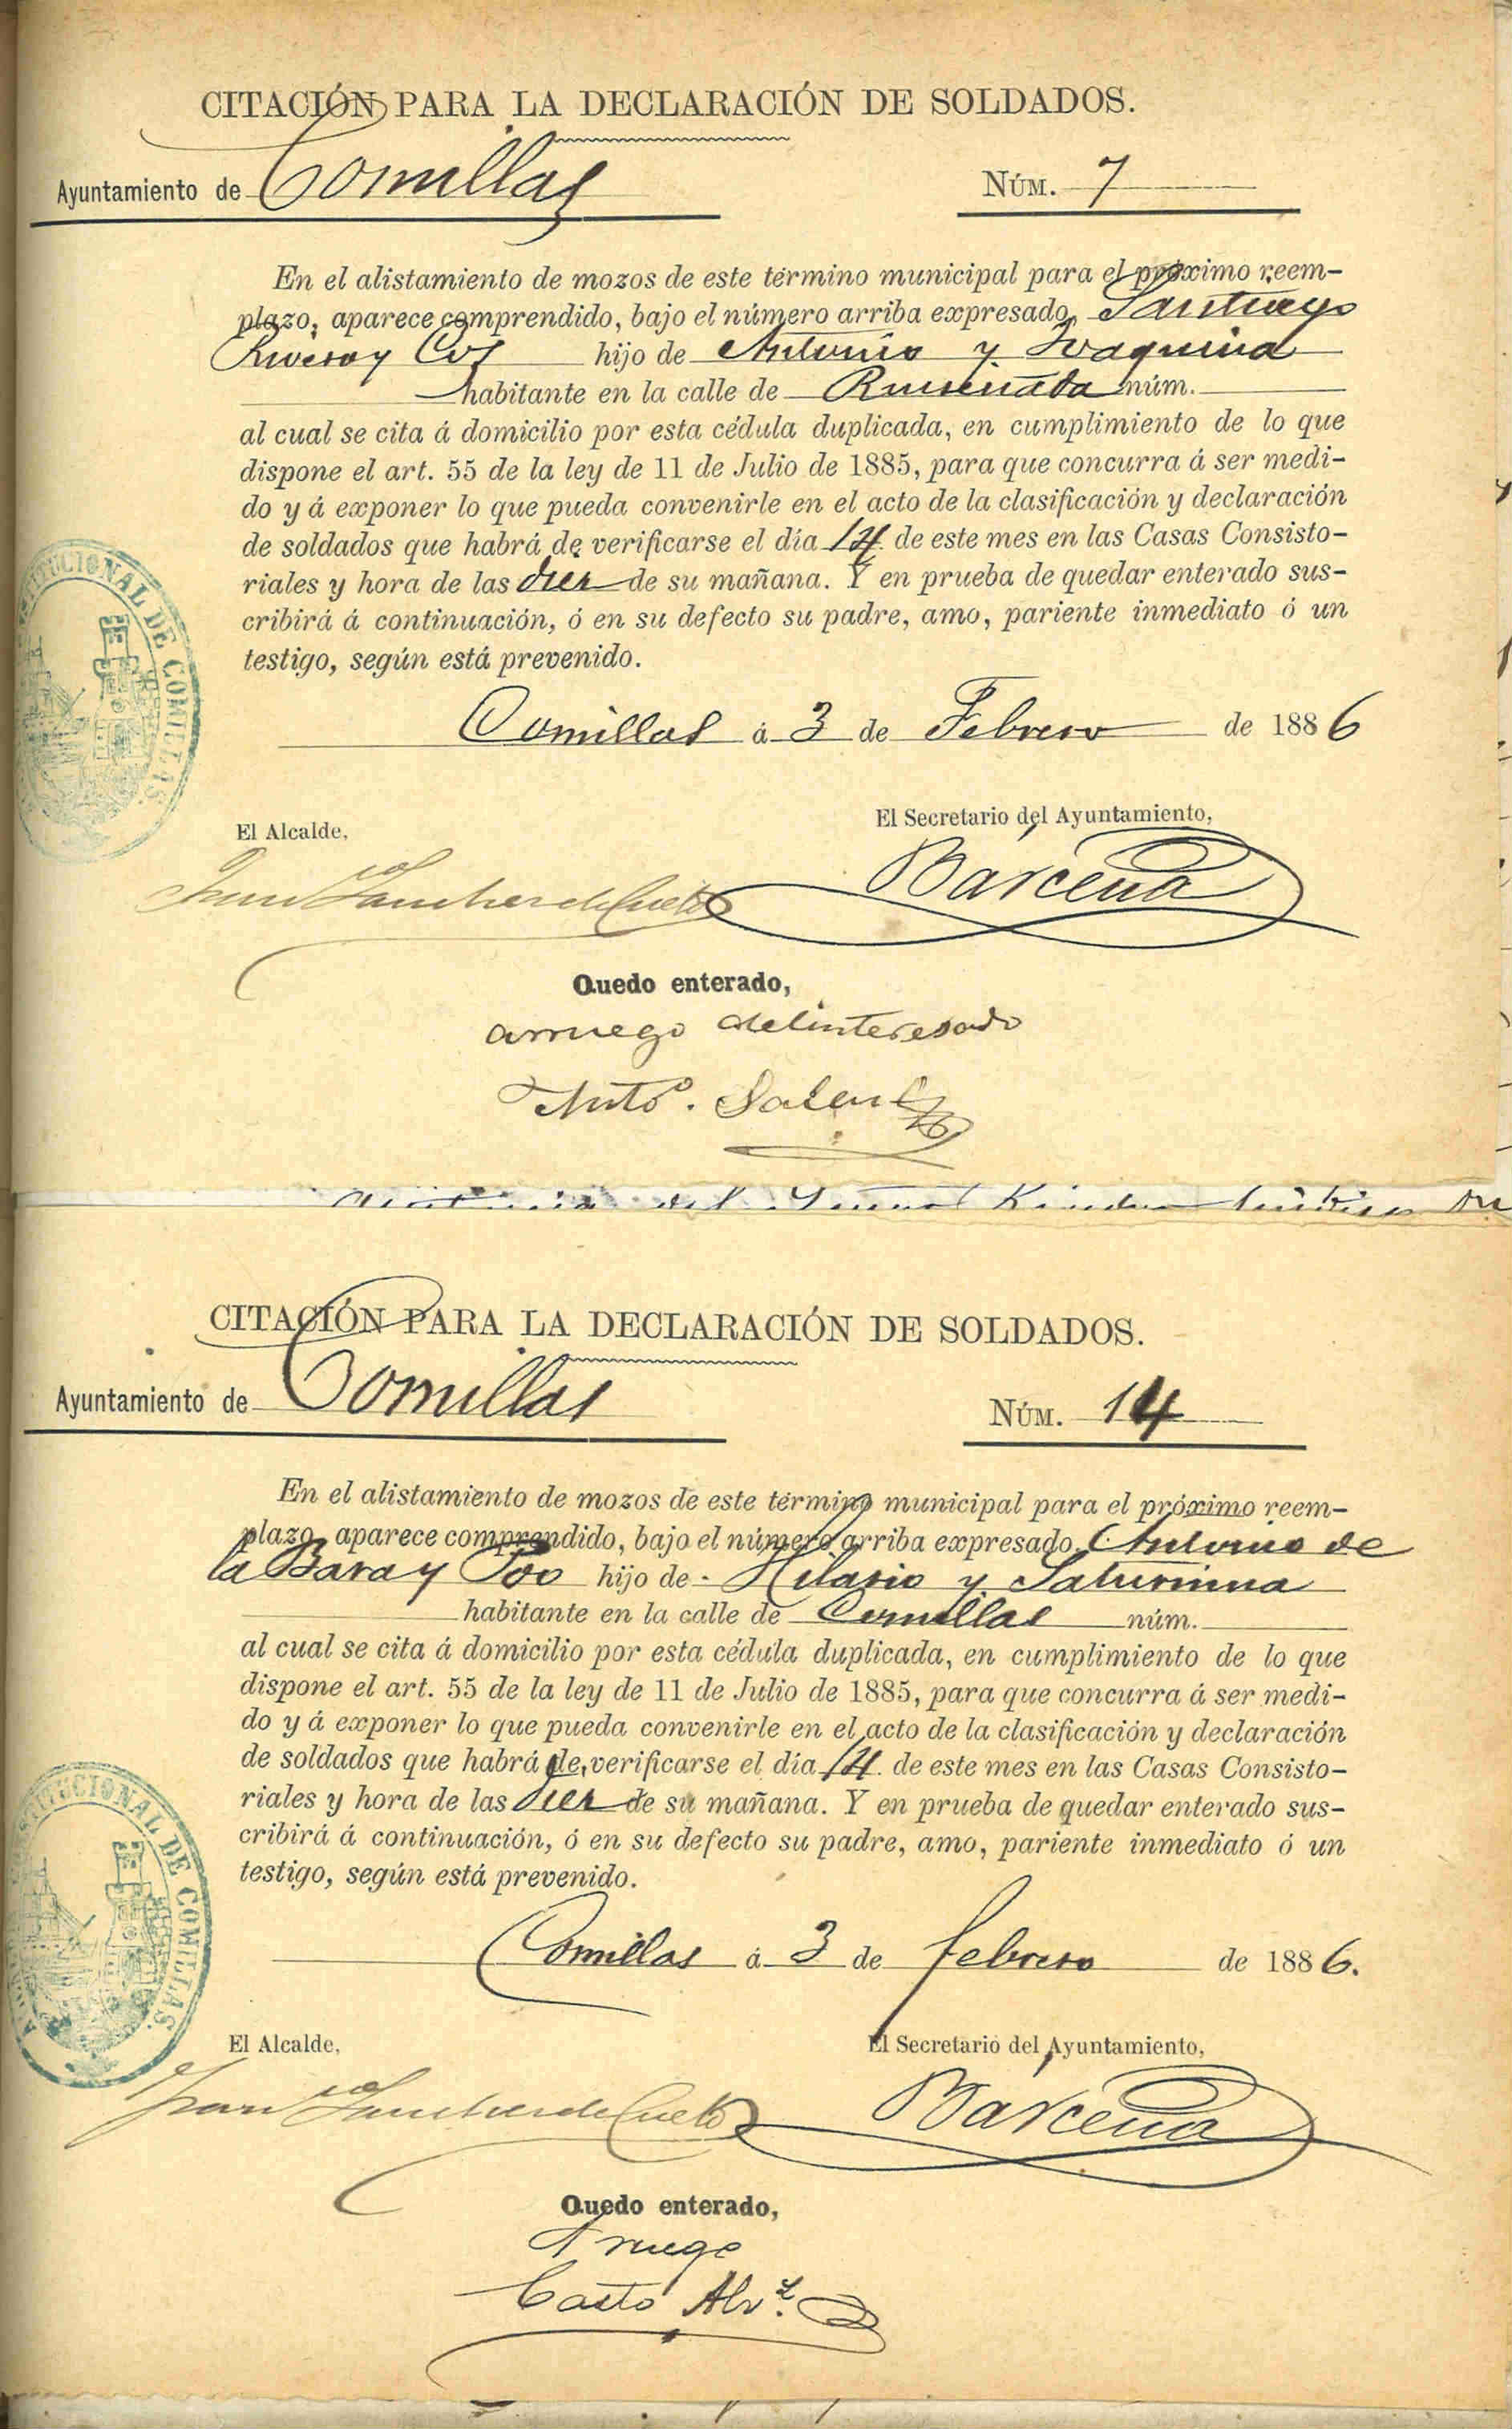 CITACIÓN PARA LA DECLARACIÓN DE SOLDADOS.
Ayuntamiento de Comillas NÚM. 7
En el alistamiento de mozos de este término municipal para el próximo reem-
plazo, aparece comprendido, bajo el número arriba expresado, Santiago
Rivero y Cos hijo de Antonio y Joaquina
habitante en la calle de Ruiseñada núm.
al cual se cita á domicilio por esta cédula duplicada, en cumplimiento de lo que
dispone el art. 55 de la ley de 11 de Julio de 1885, para que concurra á ser medi-
do y á exponer lo que pueda convenirle en el acto de la clasificación y declaración
de soldados que habrá de verificarse el día 14 de este mes en las Casas Consisto-
riales y hora de las diez de su mañana. Y en prueba de quedar enterado sus-
cribirá á continuación, ó en su defecto su padre, amo, pariente inmediato ó un
testigo, según está prevenido.
Comillas á 3 de Febrero de 1886
El Alcalde,
El Secretario del Ayuntamiento,
Juan Sanchez de Cueto
Barcena
Quedo enterado,
arruego delinteresado
Antº.
del
CITACIÓN PARA LA DECLARACIÓN DE SOLDADOS.
Ayuntamiento de Comillas NÚM. 14
En el alistamiento de mozos de este término municipal para el próximo reem-
plazo, aparece comprendido, bajo el número arriba expresado, Antonio de
la Bara y Poo hijo de Hilario y Saturnina
habitante en la calle de Comillas núm.
al cual se cita á domicilio por esta cédula duplicada, en cumplimiento de lo que
dispone el art. 55 de la ley de 11 de Julio de 1885, para que concurra á ser medi-
do y á exponer lo que pueda convenirle en el acto de la clasificación y declaración
de soldados que habrá de verificarse el día 14 de este mes en las Casas Consisto-
riales y hora de las diez de su mañana. Y en prueba de quedar enterado sus-
cribirá á continuación, ó en su defecto su padre, amo, pariente inmediato ó un
testigo, según está prevenido.
Comillas á 3 de febrero de 1886.
El Alcalde,
El Secretario del Ayuntamiento,
Juan Sanchez de Cueto
Barcena
Quedo enterado,
A ruego
Casto Alvz.